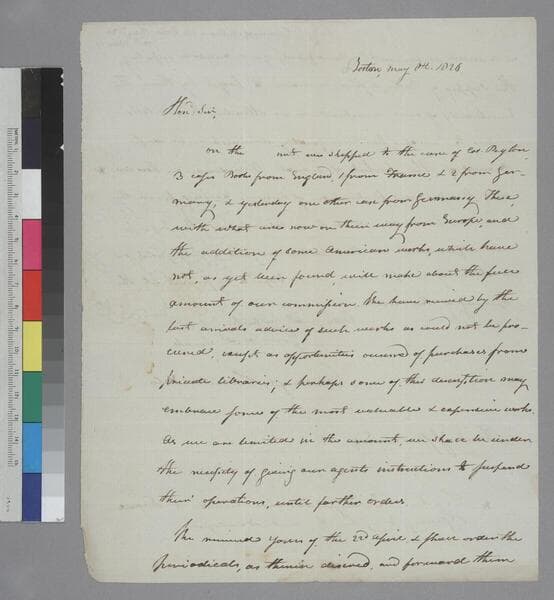 Boston, May 8th. 1826
Hon. Sir,
On the inst. we shipped to the care of Col. Peyton
3 cases Books from England, 1 from France & 2 from Ger-
many, & yesterday one other case from Germany. These,
with what are now on their way from Europe, and
the addition of some American works, which have
not, as yet been found, will make about the full
amount of our commission. We have received by the
last arrivals advice of such works as could not be pro-
cured, except as opportunities occured of purchases from
private libraries; & perhaps some of this description may
embrace some of the most valuable & expensive works.
As we are limited in the amount we shall be under
the necessity of giving our agents instructions to suspend
their operations, until farther orders.
We received yours of the 22d April & shall order the
periodicals, as therein desired, and forward them